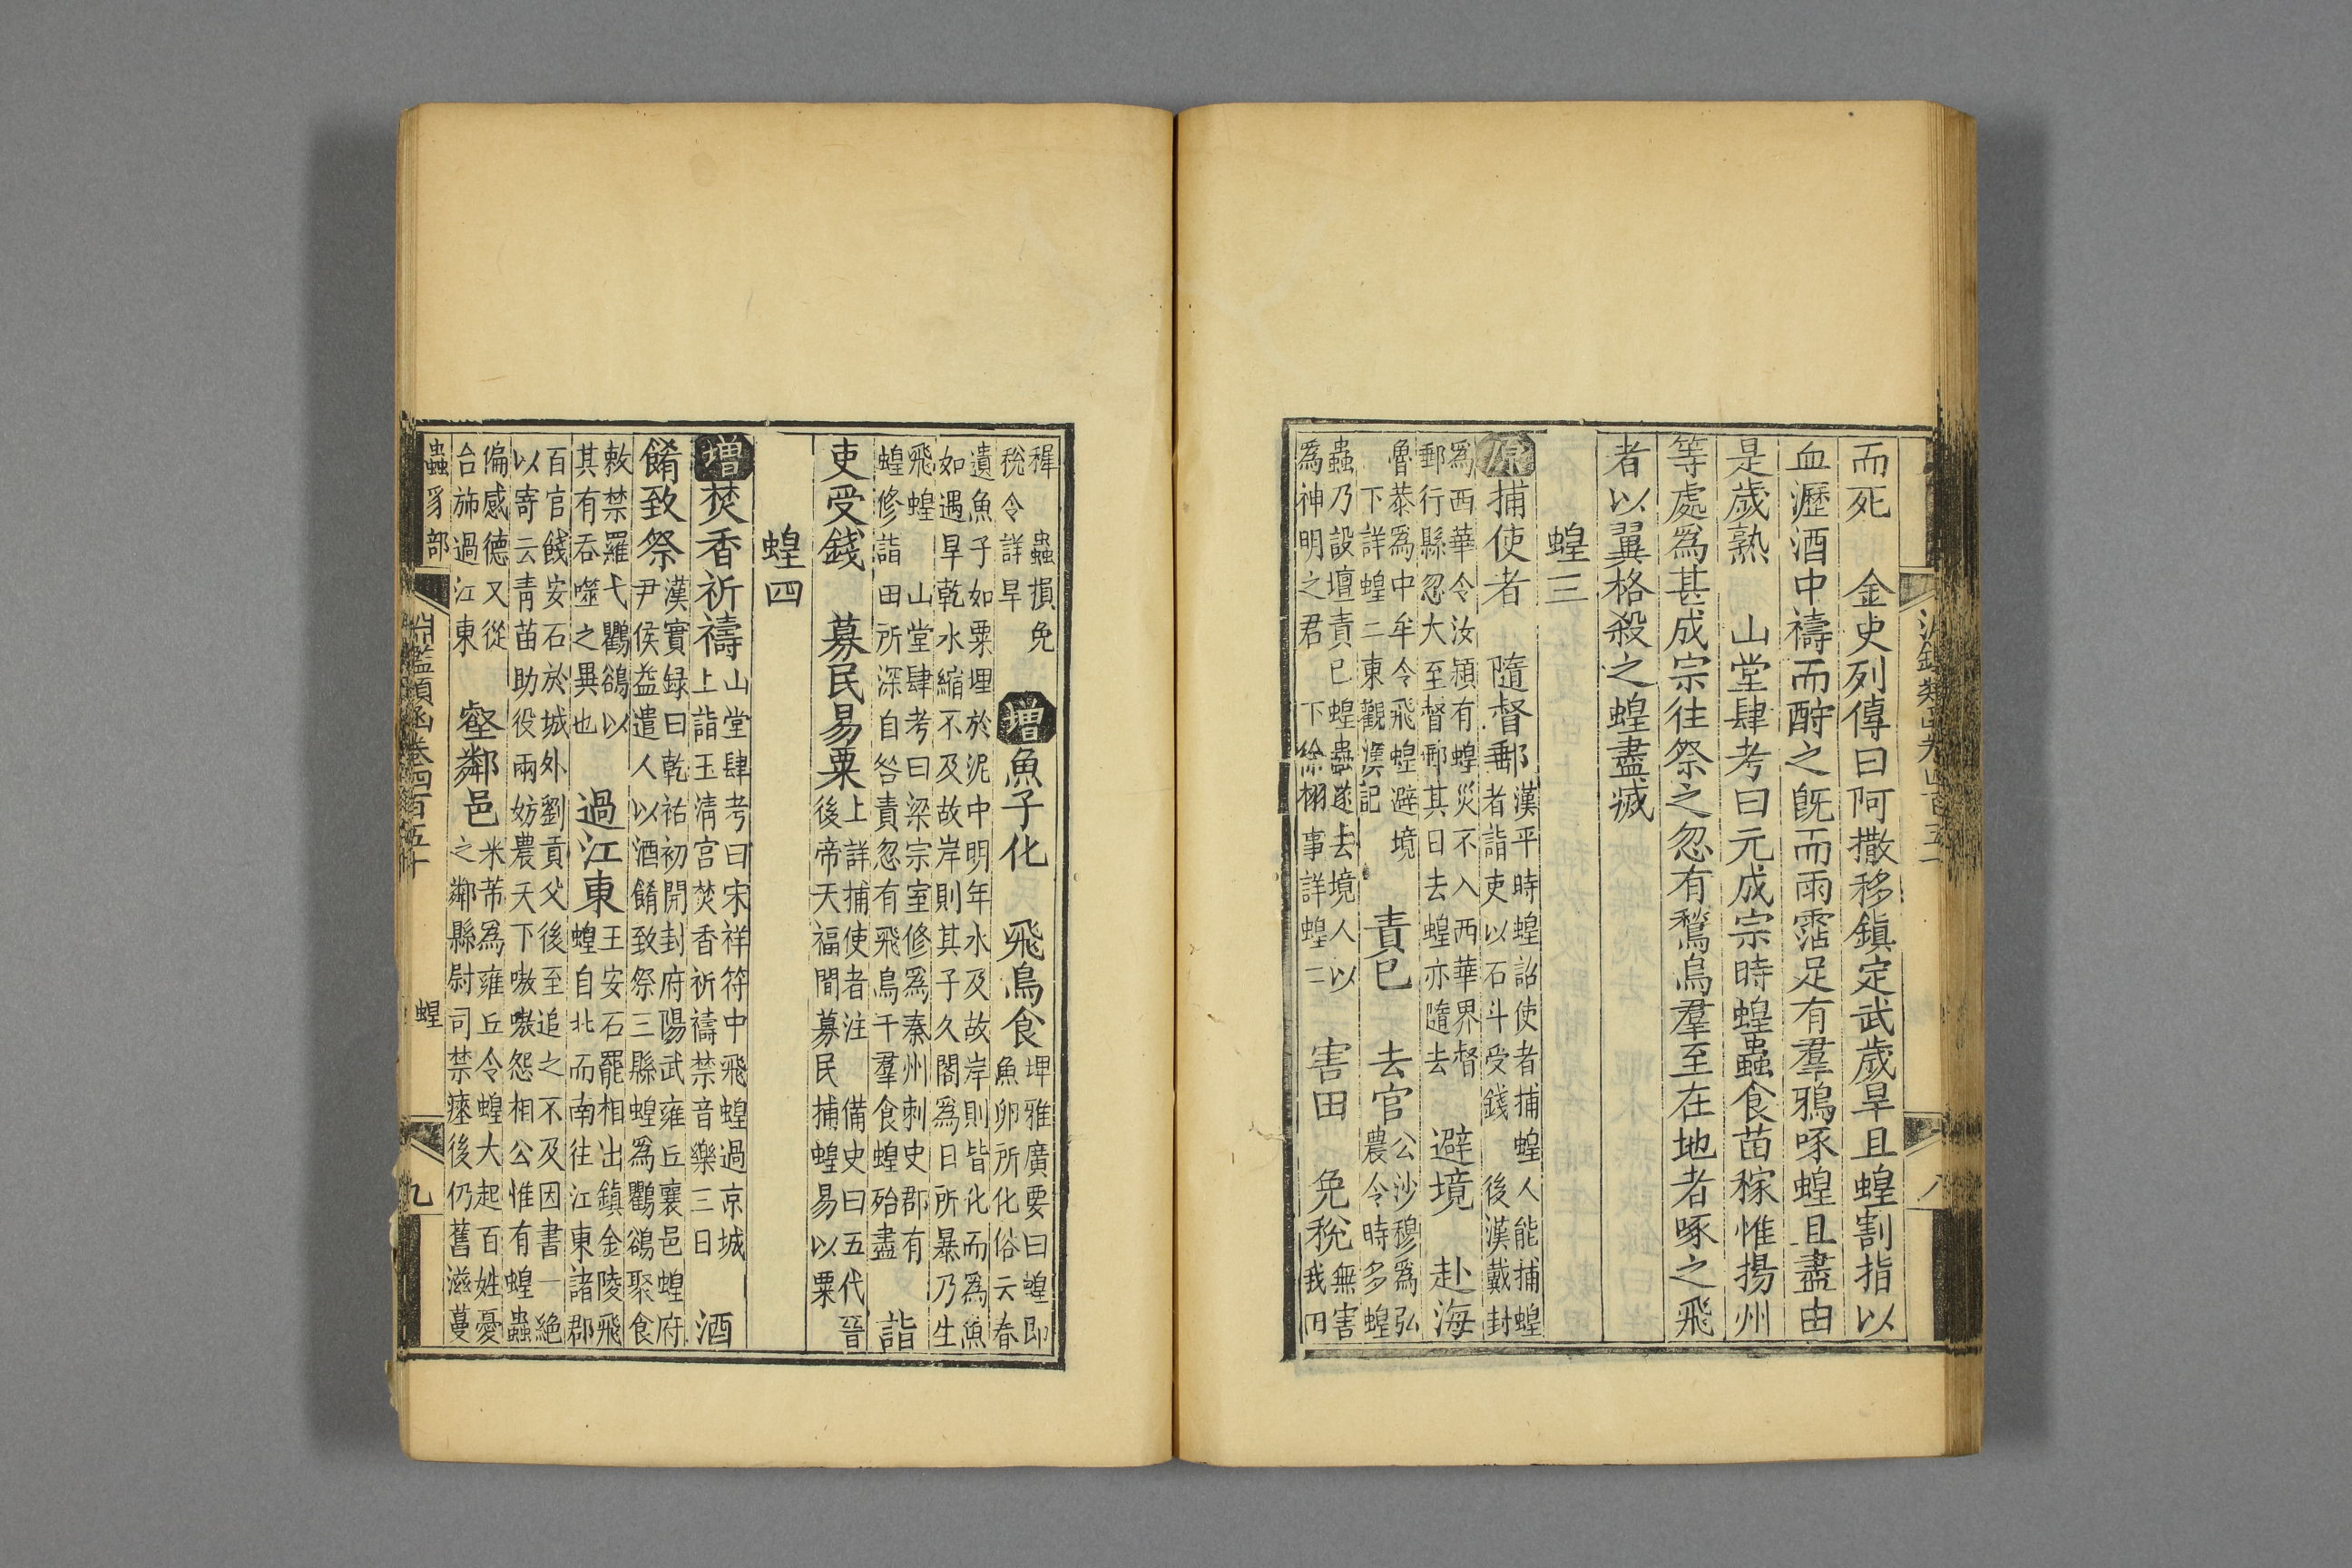 而死　金史列傳曰阿撒移鎮定武歲旱且蝗割指以
血瀝酒中禱而酹之旣而雨霑足有羣鴉啄蝗且盡由
是歲熟　山堂肆考曰元成宗時蝗蟲食苗稼惟揚州
等處爲甚成宗往祭之忽有鶖鳥羣至在地者啄之飛
者以翼格殺之蝗盡滅
蝗三
原捕使者　隨督郵
漢平時蝗詔使者捕蝗人能捕蝗
者詣吏以石斗受錢　後漢戴封
爲西華令汝潁有蝗災不入西華界督
郵行縣忽大至督郵其日去蝗亦隨去
避境　赴海
魯恭爲中牟令飛蝗避境
下詳蝗二東觀漢記
責已　去官
公沙穆爲弘
農令時多蝗
蟲乃設壇責已蝗蟲遂去境人以
爲神明之君　下徐栩事詳蝗二
害田　免稅
無害
我田
穉　蟲損免
稅令詳旱
增魚子化　飛鳥食
埤雅廣要曰蝗即
魚卵所化俗云春
遺魚子如粟埋於泥中明年水及故岸則皆化而爲魚
如遇旱乾水縮不及故岸則其子久閣爲日所暴乃生
飛蝗　山堂肆考曰梁宗室修爲秦州刺史郡有
蝗修詣田所深自咎責忽有飛鳥千羣食蝗殆盡
詣
吏受錢　募民易粟
上詳捕使者注　備史曰五代晉
後帝天福間募民捕蝗易以粟
蝗四
增焚香祈禱
山堂肆考曰宋祥符中飛蝗過京城
上詣玉清宮焚香祈禱禁音樂三日
酒
餚致祭
漢實録曰乾祐初開封府陽武雍丘襄邑蝗府
尹侯益遣人以酒餚致祭三縣蝗爲鸜鵒聚食
敕禁羅弋鸜鵒以
其有吞噬之異也
過江東
王安石罷相出鎮金陵飛
蝗自北而南往江東諸郡
百官餞安石於城外劉貢父後至追之不及因書一絕
以寄云青苗助役兩妨農天下嗷嗷怨相公惟有蝗蟲
偏感德又從
台斾過江東
壑鄰邑
米芾爲雍丘令蝗大起百姓憂
之鄰縣尉司禁瘞後仍舊滋蔓
蟲豸部
淵鑑類函卷四百五十　蝗　九